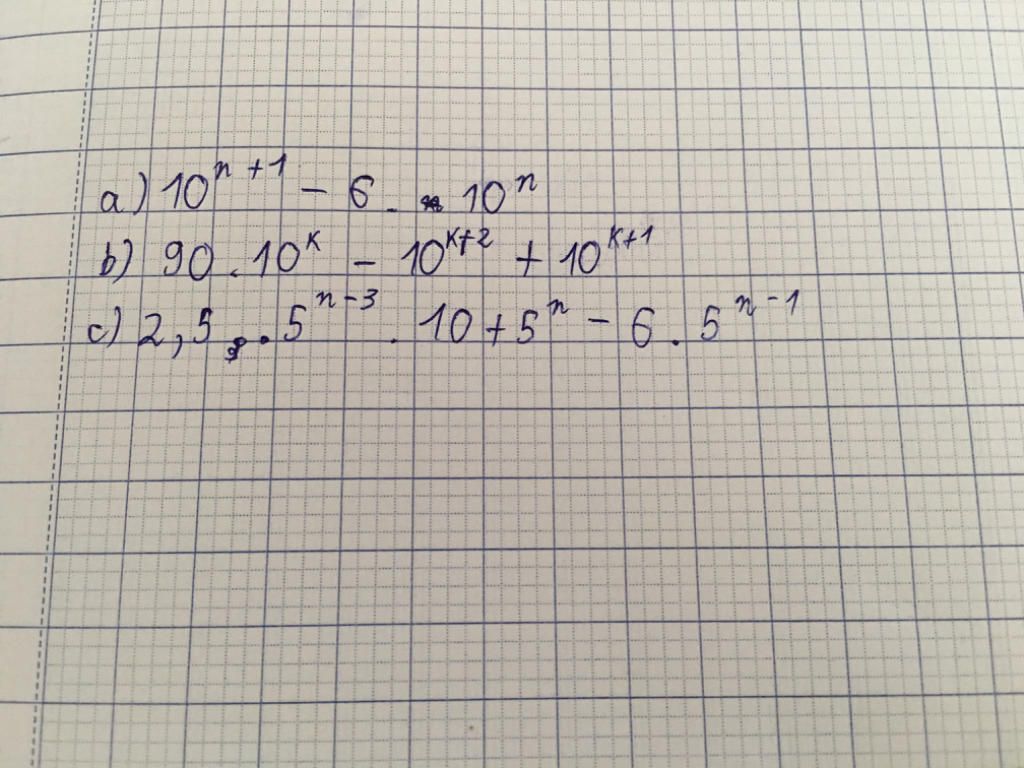 a) 10^{n+1} - 6 . 10^{n}
b) 90 . 10^{k} - 10^{k+2} + 10^{k+1}
c) 2,5 . 5^{n-3} . 10 + 5^{n} - 6 . 5^{n-1}